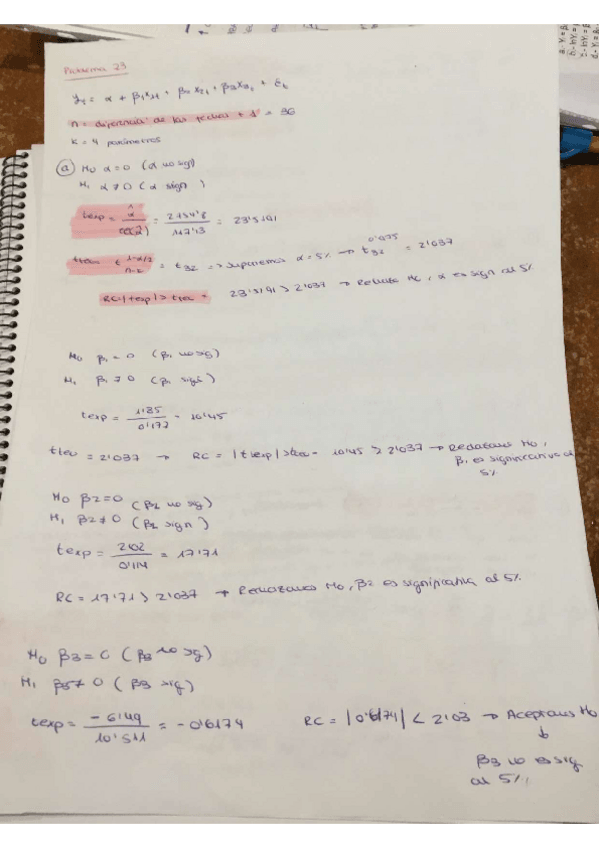 Problema 23
yt = α + β1x1t + β2x2t + β3x3t + êt
n = diferencia de las fechas + 1 = 36
K = 4 parámetros
(a) H0 α = 0 (α no sig)
H1 α ≠ 0 (α sign)
texp = α̂ / ee(α̂) = 2754'8 / 117'13 = 23'5191
tteo t 1-α/2 n-k = t32 => suponemos α = 5% → t32 0'975 = 2'037
RC = |texp| > tteo = 23'5191 > 2'037 → Rechazo H0, α es sign al 5%
H0 β1 = 0 (β1 no sig)
H1 β1 ≠ 0 (β1 sig)
texp = 1'85 / 0'177 = 10'45
tteo = 2'037 → RC = |texp| > tteo = 10'45 > 2'037 → Rechazamos H0,
β1 es significativa al
5%
H0 β2 = 0 (β2 no sig)
H1 β2 ≠ 0 (β2 sign)
texp = 2'02 / 0'114 = 17'71
RC = 17'71 > 2'037 → Rechazamos H0, β2 es significativa al 5%
H0 β3 = 0 (β3 no sig)
H1 β3 ≠ 0 (β3 sig)
texp = -6'49 / 10'511 = -0'6174
RC = |0'6174| < 2'03 → Aceptamos H0
↓
β3 no es sig
al 5%